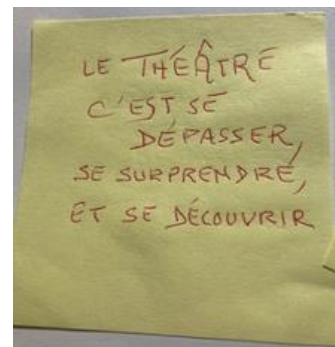 LE THÉÂTRE
C'EST SE
DÉPASSER,
SE SURPRENDRE,
ET SE DÉCOUVRIR